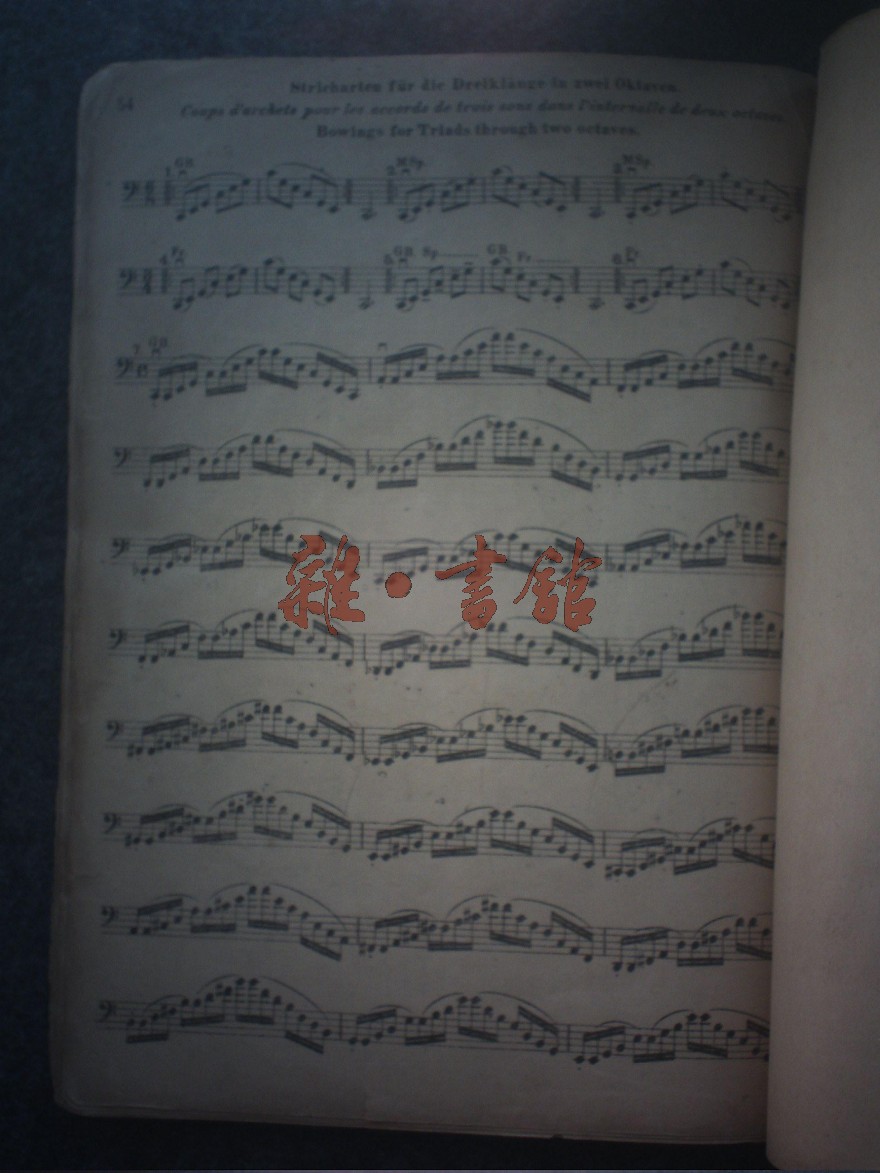 54
Stricharten für die Dreiklänge in zwei Oktaven.
Coups d'archets pour les accords de trois sons dans l'intervalle de deux octaves.
Bowings for Triads through two octaves.
1. GB. 2. MSp. 3. MSp.
4. Fr. 5. GB. Sp. GB. Fr. 6. Fr.
7. GB.
雜·書館